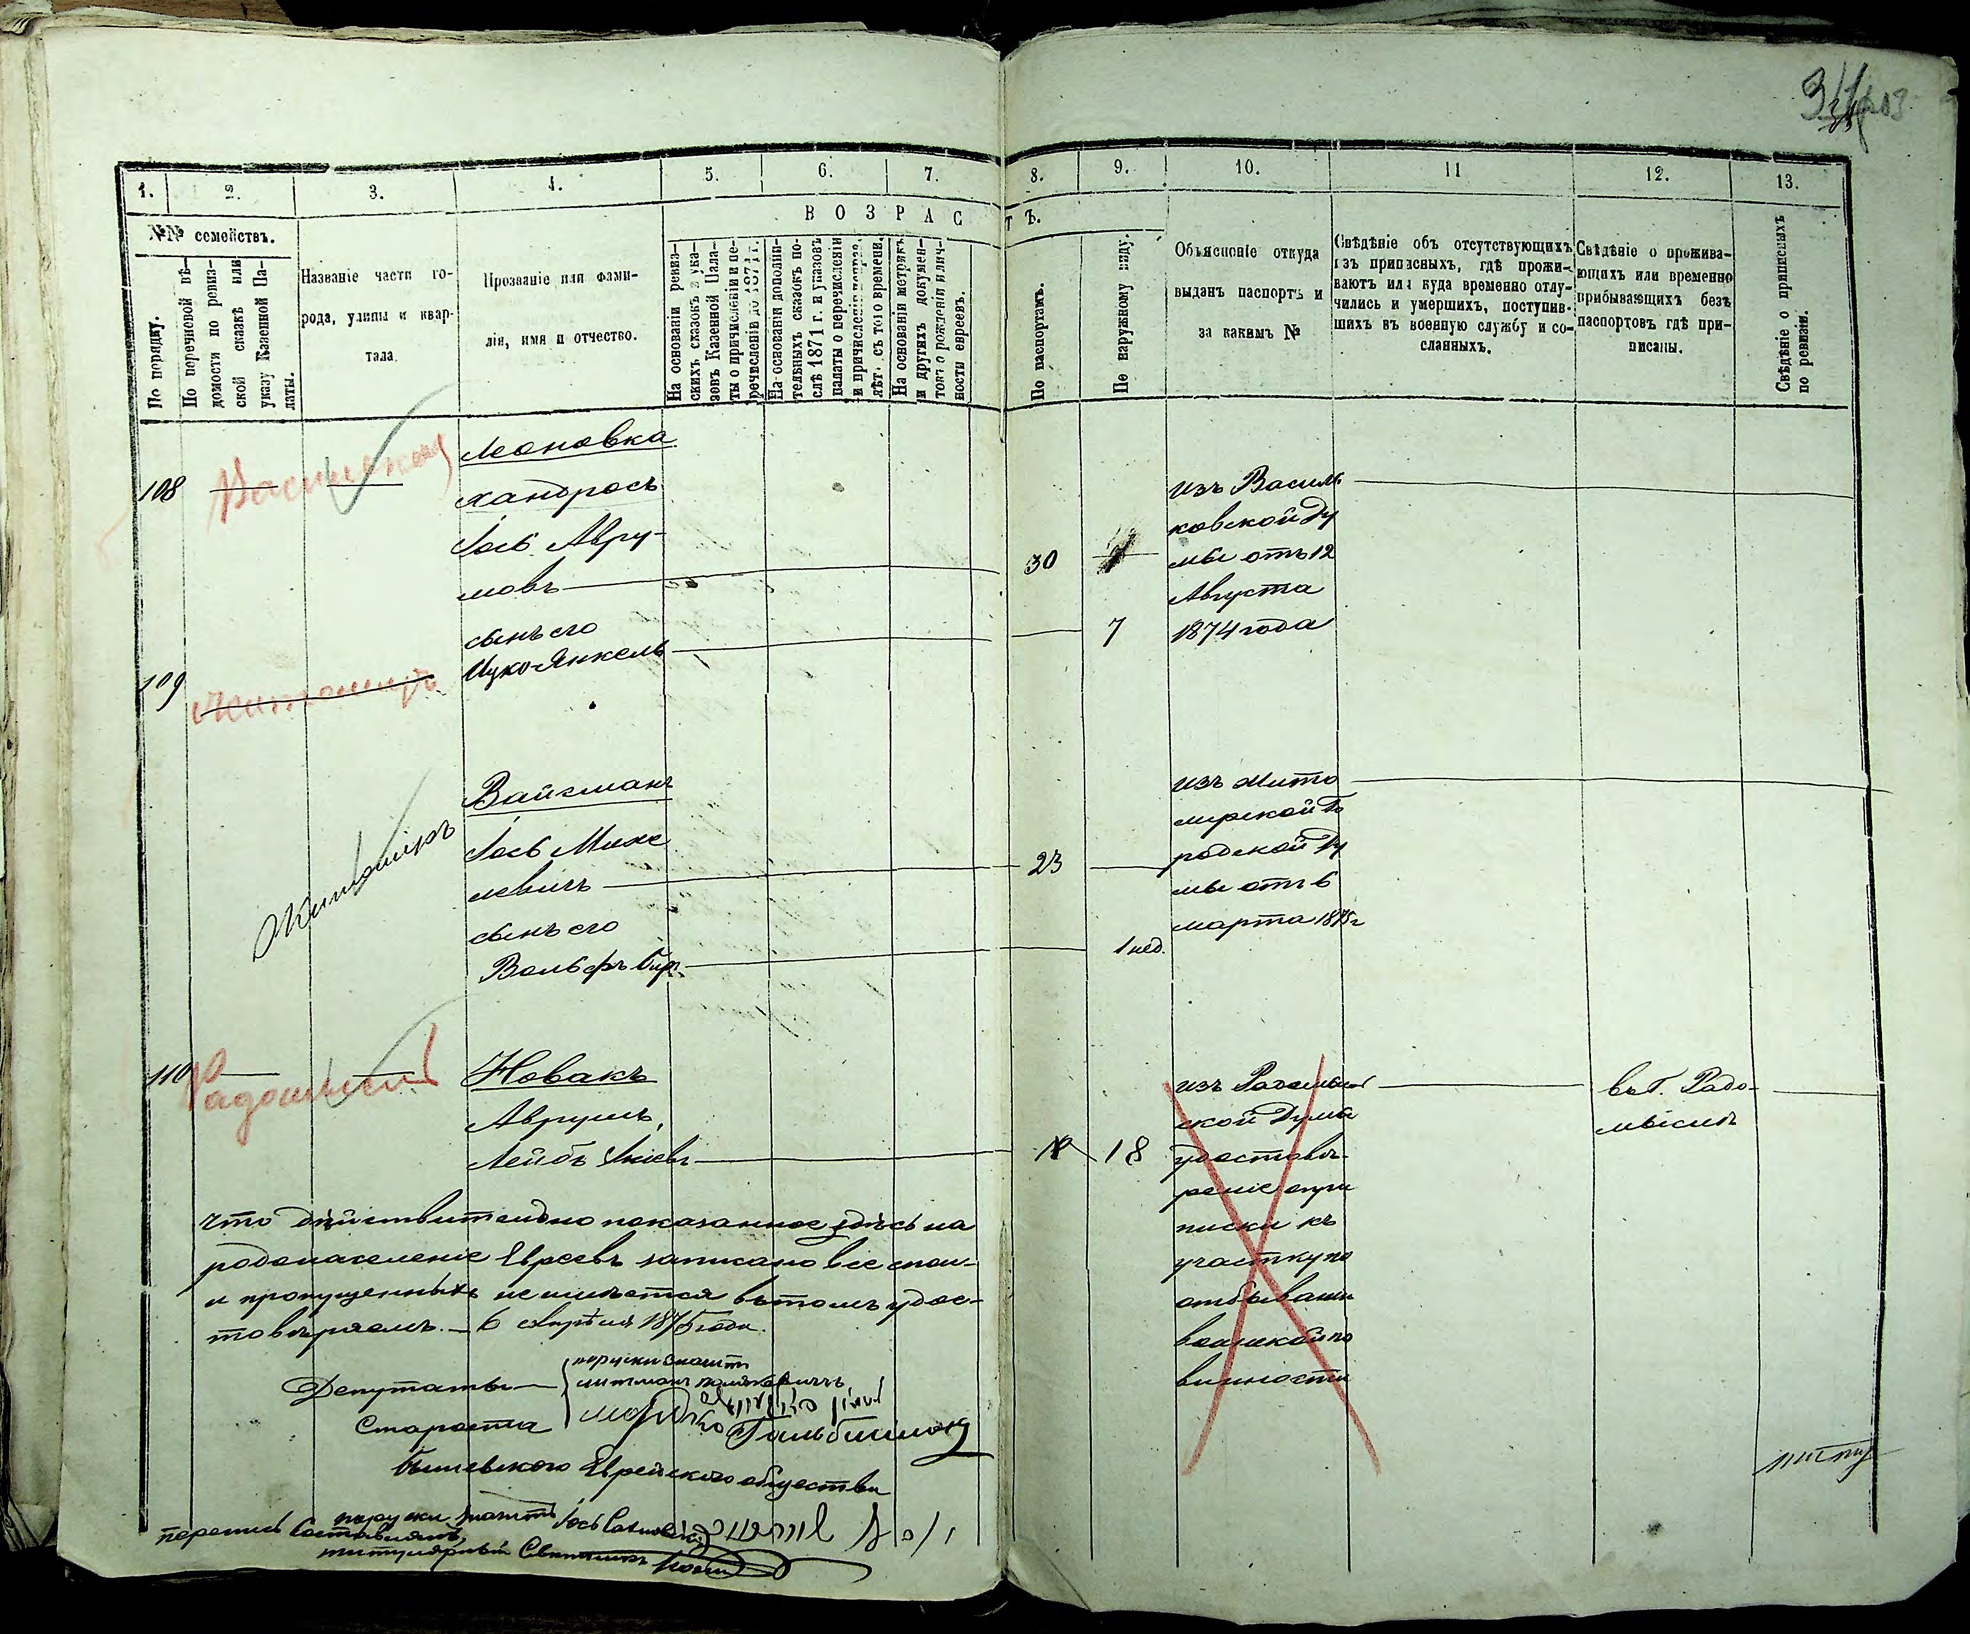 403
1.
2.
3.
4.
5.
6.
7.
8.
9.
10.
11
12.
13.
№№ семействъ.
По порядку.
По перечневой вѣ-
домости по ревиз-
ской сказкѣ или
указу Казенной Па-
латы.
Названіе части го-
рода, улицы и квар-
тала.
Прозваніе или фами-
лія, имя и отчество.
ВОЗРАСТЪ.
На основаніи ревиз-
скихъ сказокъ и ука-
зовъ Казенной Пала-
ты о причисленіи и пе-
речисленіи до 1871 г.
На основаніи дополни-
тельныхъ сказокъ по-
слѣ 1871 г. и указовъ
палаты о перечисленіи
и причисленіи
лѣт. съ того времени.
На основаніи метрикъ
и другихъ докумен-
товъ о рожденіи и лич-
ности евреевъ.
По паспортамъ.
По наружному виду.
Объясненіе откуда
выданъ паспортъ и
за какимъ №
Свѣдѣніе объ отсутствующихъ
изъ приписныхъ, гдѣ прожи-
ваютъ или куда временно отлу-
чились и умершихъ, поступив-
шихъ въ военную службу и со-
сланныхъ.
Свѣдѣніе о прожива-
ющихъ или временно
прибывающихъ безъ
паспортовъ гдѣ при-
писаны.
Свѣдѣніе о приписныхъ
по ревизіи.
108
Леоновка
хандросъ
Іось Авру-
мовъ
30
сынъ его
Ицко-Янкель
7
изъ Василь
ковской Ду
мы отъ 12
Августа
1874 года
109
Житомиръ
Житомиръ
Вайсманъ
Іось Михе
левичъ
23
сынъ его
Вольфъ Бер.
1 нед.
изъ Жито
мирской Го
родской Ду
мы отъ 6
марта 1875 г
110
Новакъ
Аврумъ,
Лейбъ
18
изъ Радомысль
ской Думы
удостовѣ-
реніе о при
писки къ
участку по
отбыванію
воинской по
винности
въ Г. Радо-
мысли
что дѣйствительно показанное здѣсь на
родонаселеніе Евреевъ записано все
и пропущенныхъ не имѣется въ томъ удос-
товѣряемъ. 6 апрѣля 1875 года.
Депутаты
Староста
Гальбшман
Бышевского Еврейского общества
перепись составлялъ
титулярный Совѣтникъ